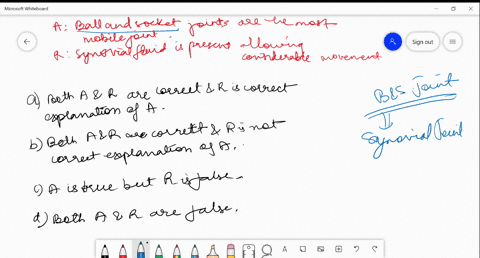 Microsoft Whiteboard
Sign out
A: Ball and socket joints are the most
mobile joint.
R: Synovial fluid is present allowing
considerable movement
a) Both A & R are correct & R is correct
explanation of A.
b) Both A & R are correct & R is not
correct explanation of A.
c) A is true but R is false.
d) Both A & R are false.
B&S Joint
Synovial Joint